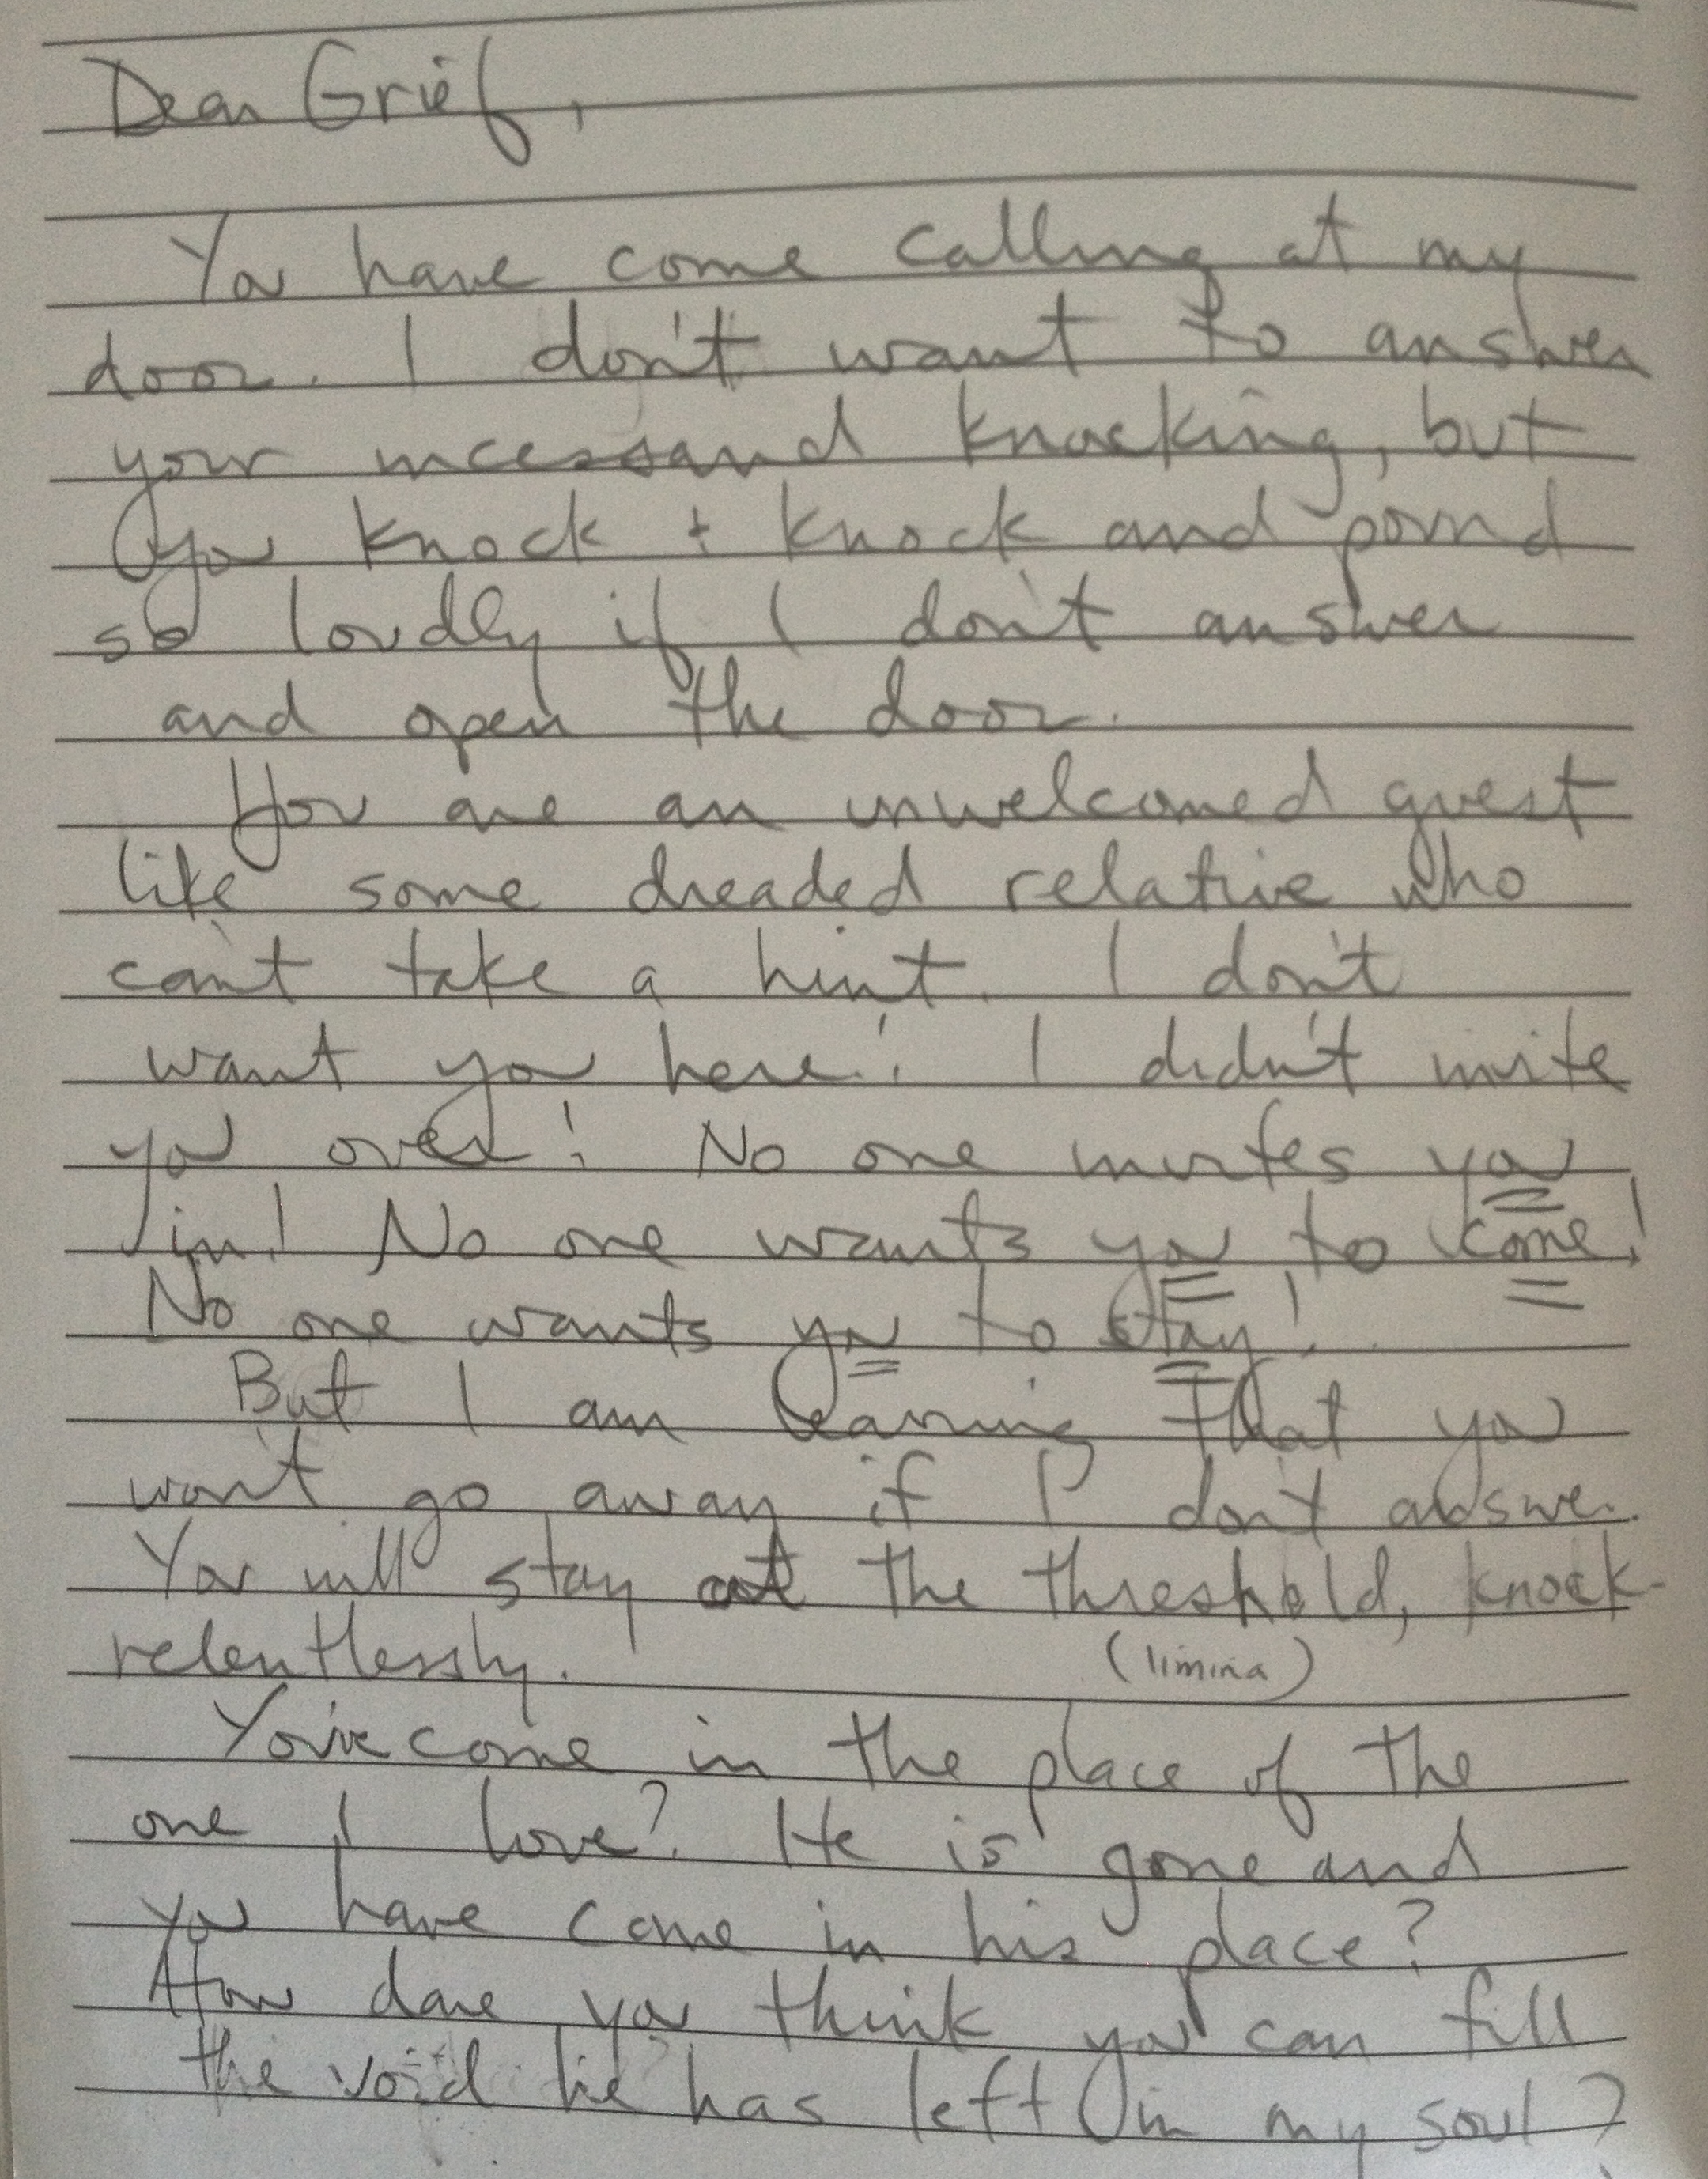 Dear Grief,
You have come calling at my
door. I don't want to answer
your incessand knocking, but
you knock + knock and pound
so loudly if I don't answer
and open the door.
You are an unwelcomed guest
like some dreaded relative who
can't take a hint. I don't
want you here! I didn't invite
you over! No one invites you
in! No one wants you to come!
No one wants you to stay!
But I am learning that you
won't go away if I don't answer.
You will stay at the threshold, knock-
relentlessly. (limina)
You've come in the place of the
one I love? He is gone and
you have come in his place?
How dare you think you can fill
the void he has left in my soul?